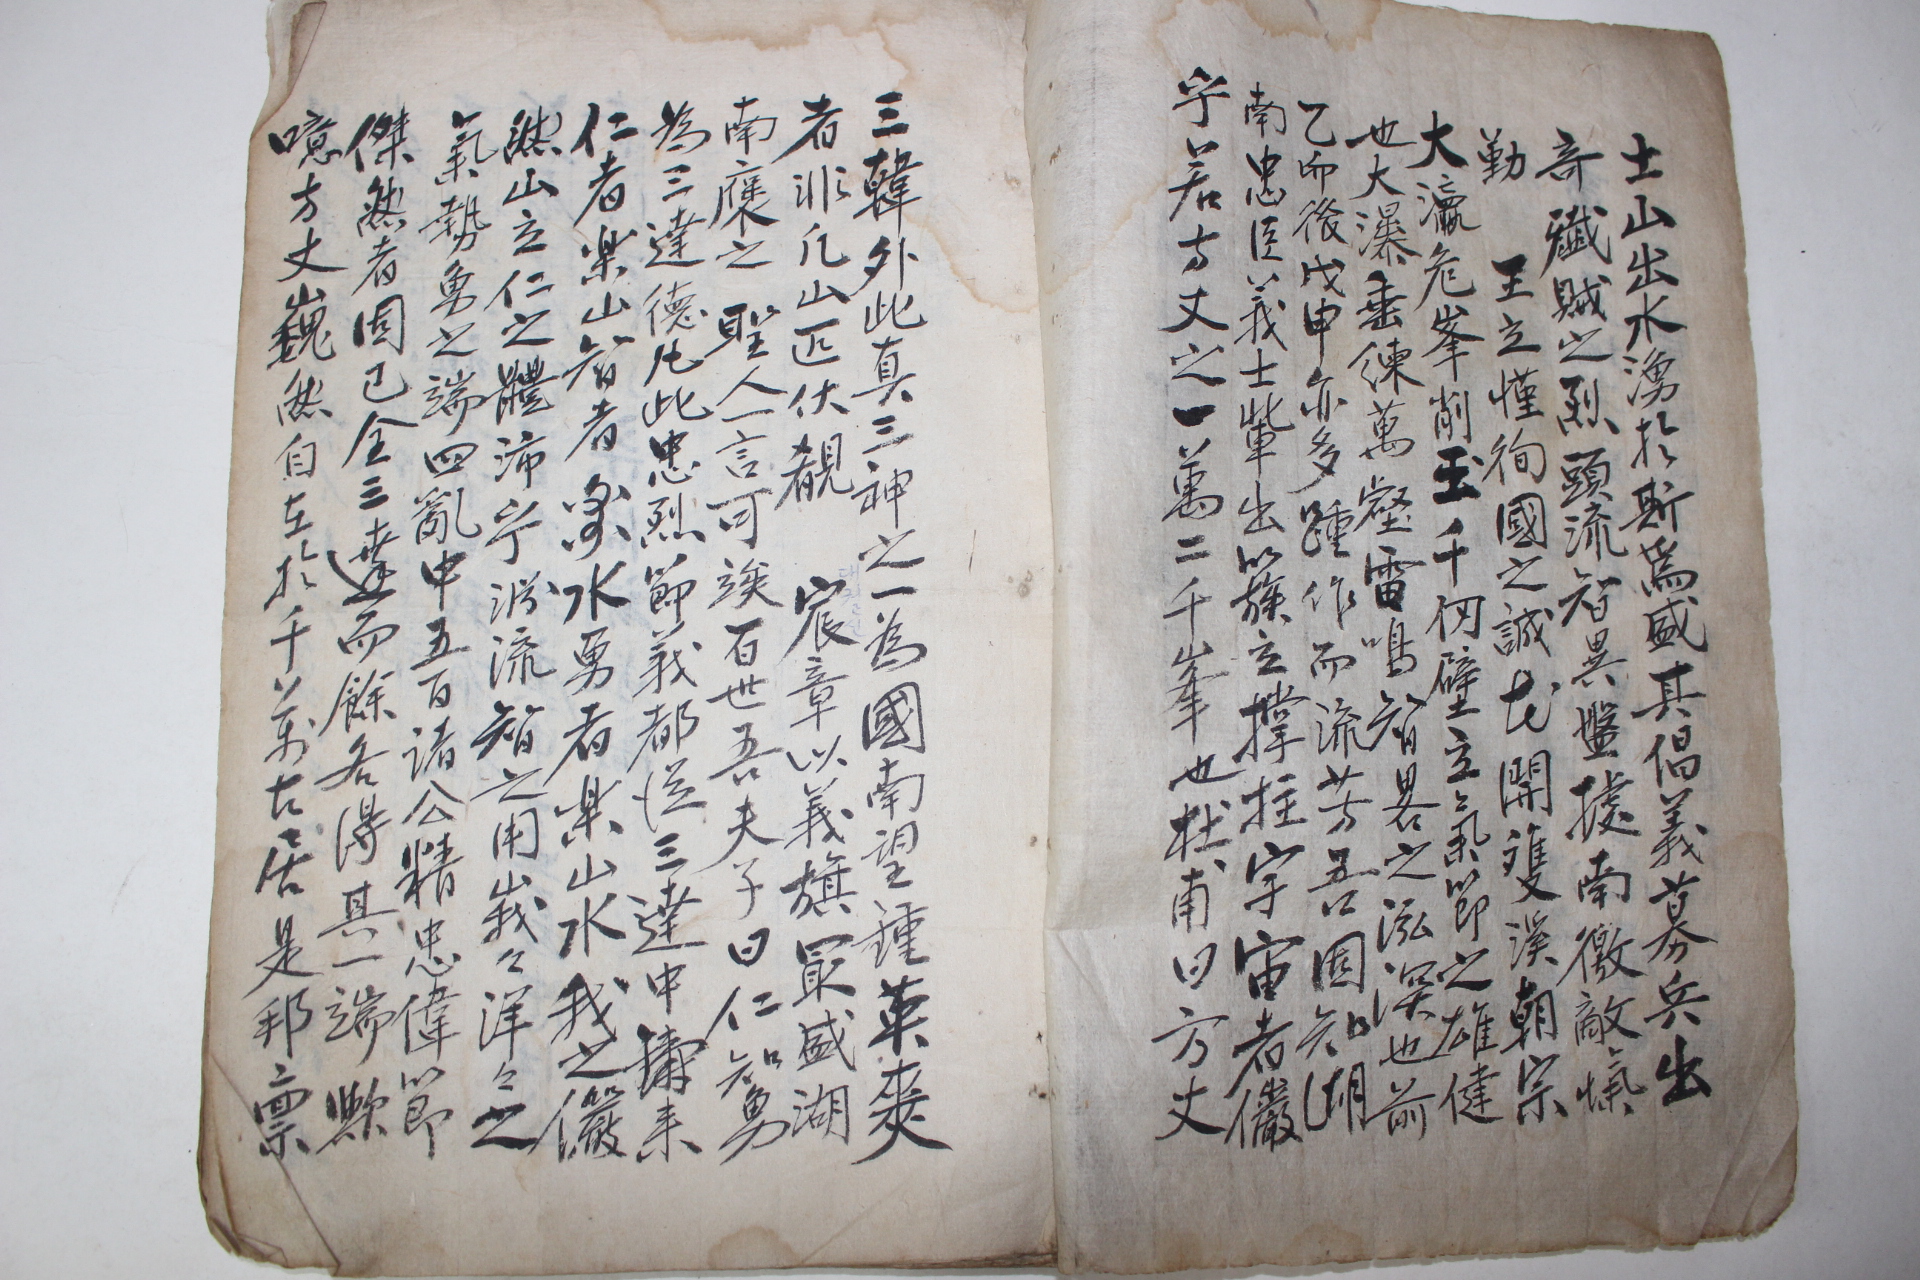 士山出水湧於斯爲盛其倡義募兵出
奇殲賊之烈頭流智異盤據南徼敵愾
勤 王立慬徇國之誠尤開雙溪朝宗
大瀛危峯削玉千仞壁立氣節之雄健
也大瀑垂練萬壑雷鳴智畧之泓深也前
乙卯後戊申亦多踵作而流芳吾固知湖
南忠臣義士輩出以簇立撑拄宇宙者儼
乎若方丈之一萬二千峯也杜甫曰方丈
三韓外此真三神之一為國南望鍾英爽
者非凡山匹伏覩 宸章以義旗最盛湖
南褒之 聖人一言可竢百世吾夫子曰仁知勇
為三達德凡此忠烈節義都從三達中擣来
仁者楽山智者樂水勇者楽山水我之儼
然山立仁之體沛乎淵流智之用峩々洋々之
氣勢勇之端四亂中五百諸公精忠偉節
傑然者固已全三達而餘各得其一端歟
噫方丈山巍然自在於千萬古居是邦禀